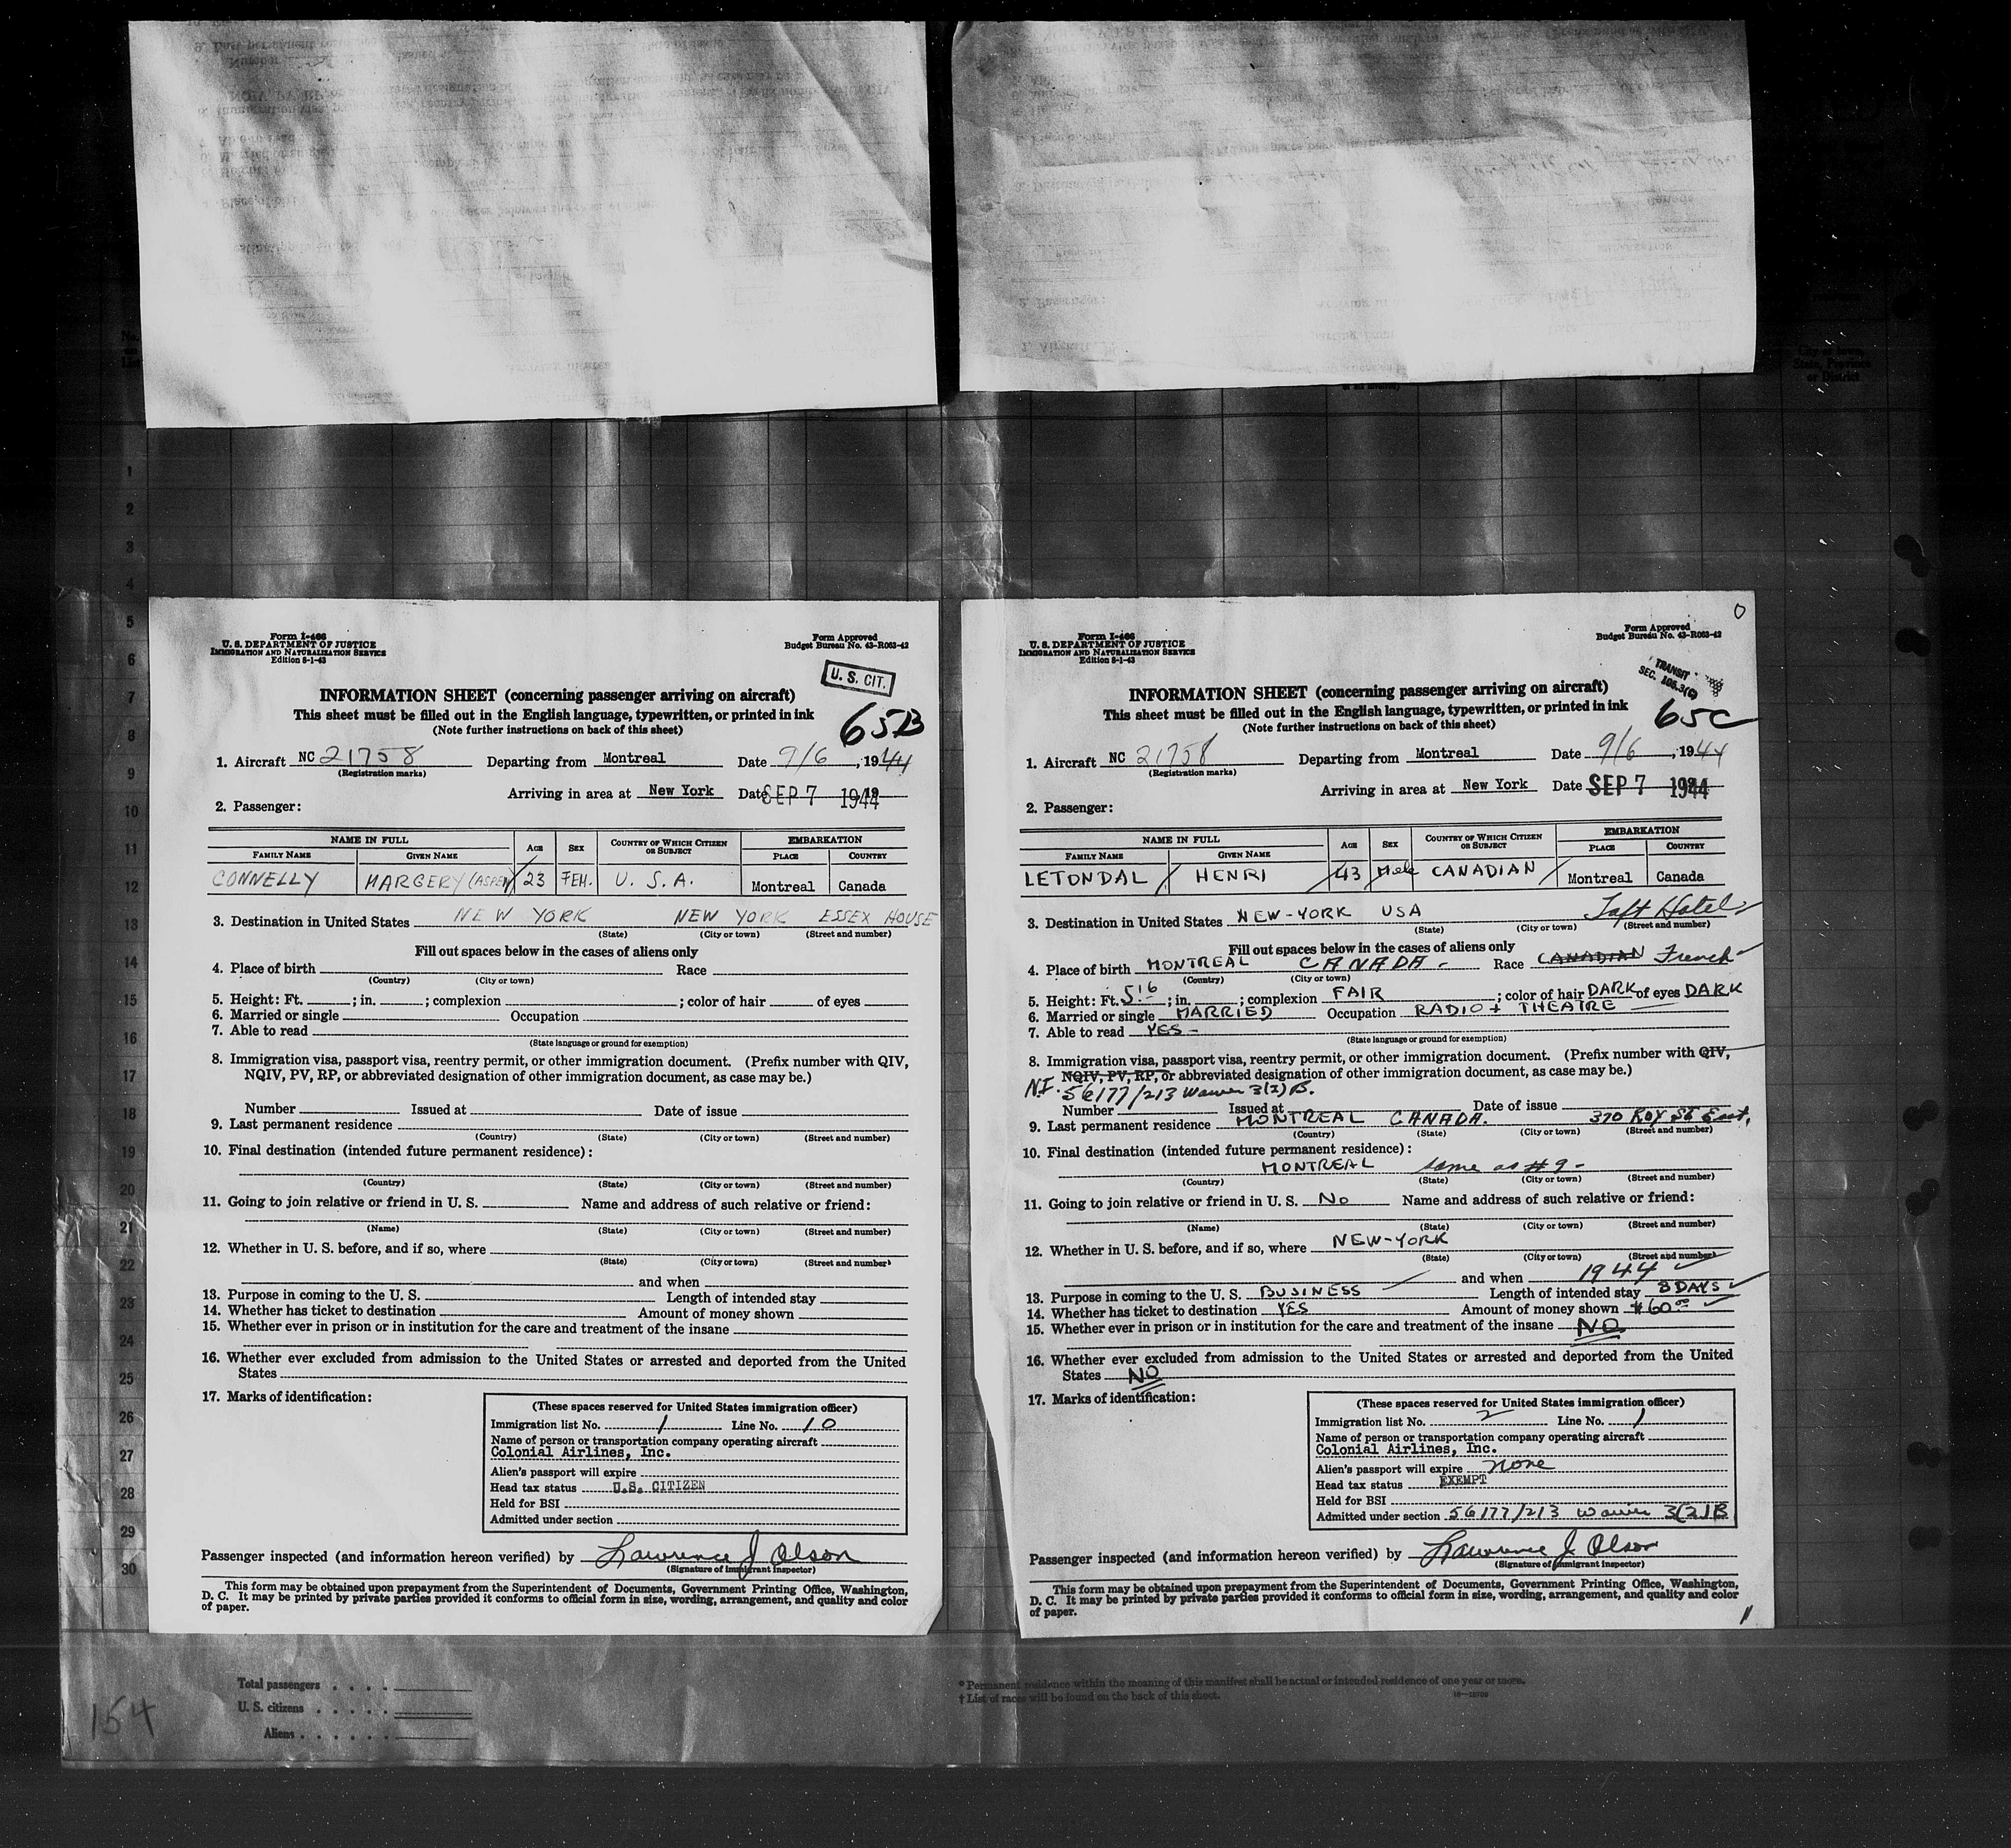 No.
on
List
City or town,
State, Province
or District
1
2
3
4
5
6
7
8
9
10
11
12
13
14
15
16
17
18
19
20
21
22
23
24
25
26
27
28
29
30
Form I-466
U. S. DEPARTMENT OF JUSTICE
IMMIGRATION AND NATURALIZATION SERVICE
Edition 8-1-43
Form Approved
Budget Bureau No. 43-R063-42
U. S. CIT.
INFORMATION SHEET (concerning passenger arriving on aircraft)
This sheet must be filled out in the English language, typewritten, or printed in ink
(Note further instructions on back of this sheet)
65B
1. Aircraft NC 21758 Departing from Montreal Date 9/6, 1944
(Registration marks)
Arriving in area at New York Date SEP 7 1944
2. Passenger:
NAME IN FULL AGE SEX COUNTRY OF WHICH CITIZEN OR SUBJECT EMBARKATION
FAMILY NAME GIVEN NAME PLACE COUNTRY
CONNELLY MARGERY (ASPEN) 23 FEM. U. S. A. Montreal Canada
3. Destination in United States NEW YORK NEW YORK ESSEX HOUSE
(State) (City or town) (Street and number)
Fill out spaces below in the cases of aliens only
4. Place of birth Race
(Country) (City or town)
5. Height: Ft. ; in. ; complexion ; color of hair of eyes
6. Married or single Occupation
7. Able to read
(State language or ground for exemption)
8. Immigration visa, passport visa, reentry permit, or other immigration document. (Prefix number with QIV,
NQIV, PV, RP, or abbreviated designation of other immigration document, as case may be.)
Number Issued at Date of issue
9. Last permanent residence
(Country) (State) (City or town) (Street and number)
10. Final destination (intended future permanent residence):
(Country) (State) (City or town) (Street and number)
11. Going to join relative or friend in U. S. Name and address of such relative or friend:
(Name) (State) (City or town) (Street and number)
12. Whether in U. S. before, and if so, where
(State) (City or town) (Street and number)
and when
13. Purpose in coming to the U. S. Length of intended stay
14. Whether has ticket to destination Amount of money shown
15. Whether ever in prison or in institution for the care and treatment of the insane
16. Whether ever excluded from admission to the United States or arrested and deported from the United
States
17. Marks of identification:
(These spaces reserved for United States immigration officer)
Immigration list No. 1 Line No. 10
Name of person or transportation company operating aircraft
Colonial Airlines, Inc.
Alien's passport will expire
Head tax status U.S. CITIZEN
Held for BSI
Admitted under section
Passenger inspected (and information hereon verified) by Lawrence J Olson
(Signature of immigrant inspector)
This form may be obtained upon prepayment from the Superintendent of Documents, Government Printing Office, Washington,
D. C. It may be printed by private parties provided it conforms to official form in size, wording, arrangement, and quality and color
of paper.
0
Form I-466
U. S. DEPARTMENT OF JUSTICE
IMMIGRATION AND NATURALIZATION SERVICE
Edition 8-1-43
Form Approved
Budget Bureau No. 43-R063-42
TRANSIT
SEC. 105.3(C)
INFORMATION SHEET (concerning passenger arriving on aircraft)
This sheet must be filled out in the English language, typewritten, or printed in ink
(Note further instructions on back of this sheet)
65C
1. Aircraft NC 21758 Departing from Montreal Date 9/6, 1944
(Registration marks)
Arriving in area at New York Date SEP 7 1944
2. Passenger:
NAME IN FULL AGE SEX COUNTRY OF WHICH CITIZEN OR SUBJECT EMBARKATION
FAMILY NAME GIVEN NAME PLACE COUNTRY
LETONDAL HENRI 43 Male CANADIAN Montreal Canada
3. Destination in United States NEW-YORK USA Taft Hotel
(State) (City or town) (Street and number)
Fill out spaces below in the cases of aliens only
4. Place of birth MONTREAL CANADA - Race CANADIAN French
(Country) (City or town)
5. Height: Ft. 5'6 ; in. ; complexion FAIR ; color of hair DARK of eyes DARK
6. Married or single MARRIED Occupation RADIO + THEATRE
7. Able to read YES -
(State language or ground for exemption)
8. Immigration visa, passport visa, reentry permit, or other immigration document. (Prefix number with QIV,
NQIV, PV, RP, or abbreviated designation of other immigration document, as case may be.)
N.I. 56177/213 Waiver 3(2)B.
Number Issued at Date of issue
9. Last permanent residence MONTREAL CANADA. 370 ROY St East.
(Country) (State) (City or town) (Street and number)
10. Final destination (intended future permanent residence):
MONTREAL same as #9 -
(Country) (State) (City or town) (Street and number)
11. Going to join relative or friend in U. S. No Name and address of such relative or friend:
(Name) (State) (City or town) (Street and number)
12. Whether in U. S. before, and if so, where NEW-YORK
(State) (City or town) (Street and number)
and when 1944
13. Purpose in coming to the U. S. BUSINESS Length of intended stay 8 DAYS
14. Whether has ticket to destination YES Amount of money shown $60 00
15. Whether ever in prison or in institution for the care and treatment of the insane NO
16. Whether ever excluded from admission to the United States or arrested and deported from the United
States NO
17. Marks of identification:
(These spaces reserved for United States immigration officer)
Immigration list No. 2 Line No. 1
Name of person or transportation company operating aircraft
Colonial Airlines, Inc.
Alien's passport will expire none
Head tax status EXEMPT
Held for BSI
Admitted under section 56177/213 Waiver 3(2)B
Passenger inspected (and information hereon verified) by Lawrence J. Olson
(Signature of immigrant inspector)
This form may be obtained upon prepayment from the Superintendent of Documents, Government Printing Office, Washington,
D. C. It may be printed by private parties provided it conforms to official form in size, wording, arrangement, and quality and color
of paper.
11
Total passengers
U. S. citizens
Aliens
154
* Permanent residence within the meaning of this manifest shall be actual or intended residence of one year or more.
† List of races will be found on the back of this sheet.